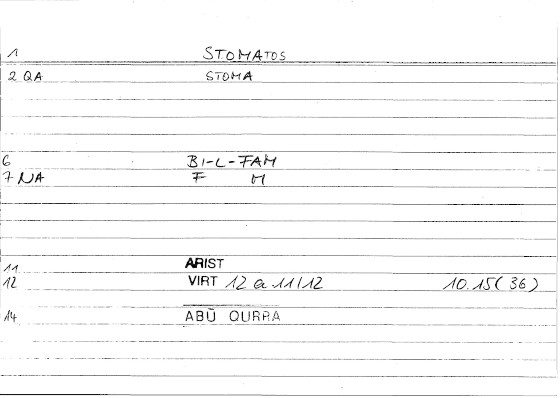 1 STOMATOS
2 QA STOMA
6 BI-L-FAM
7 NA F M
11 ARIST
12 VIRT 12 a 11/12 10.15(36)
14 ABŪ QURRA